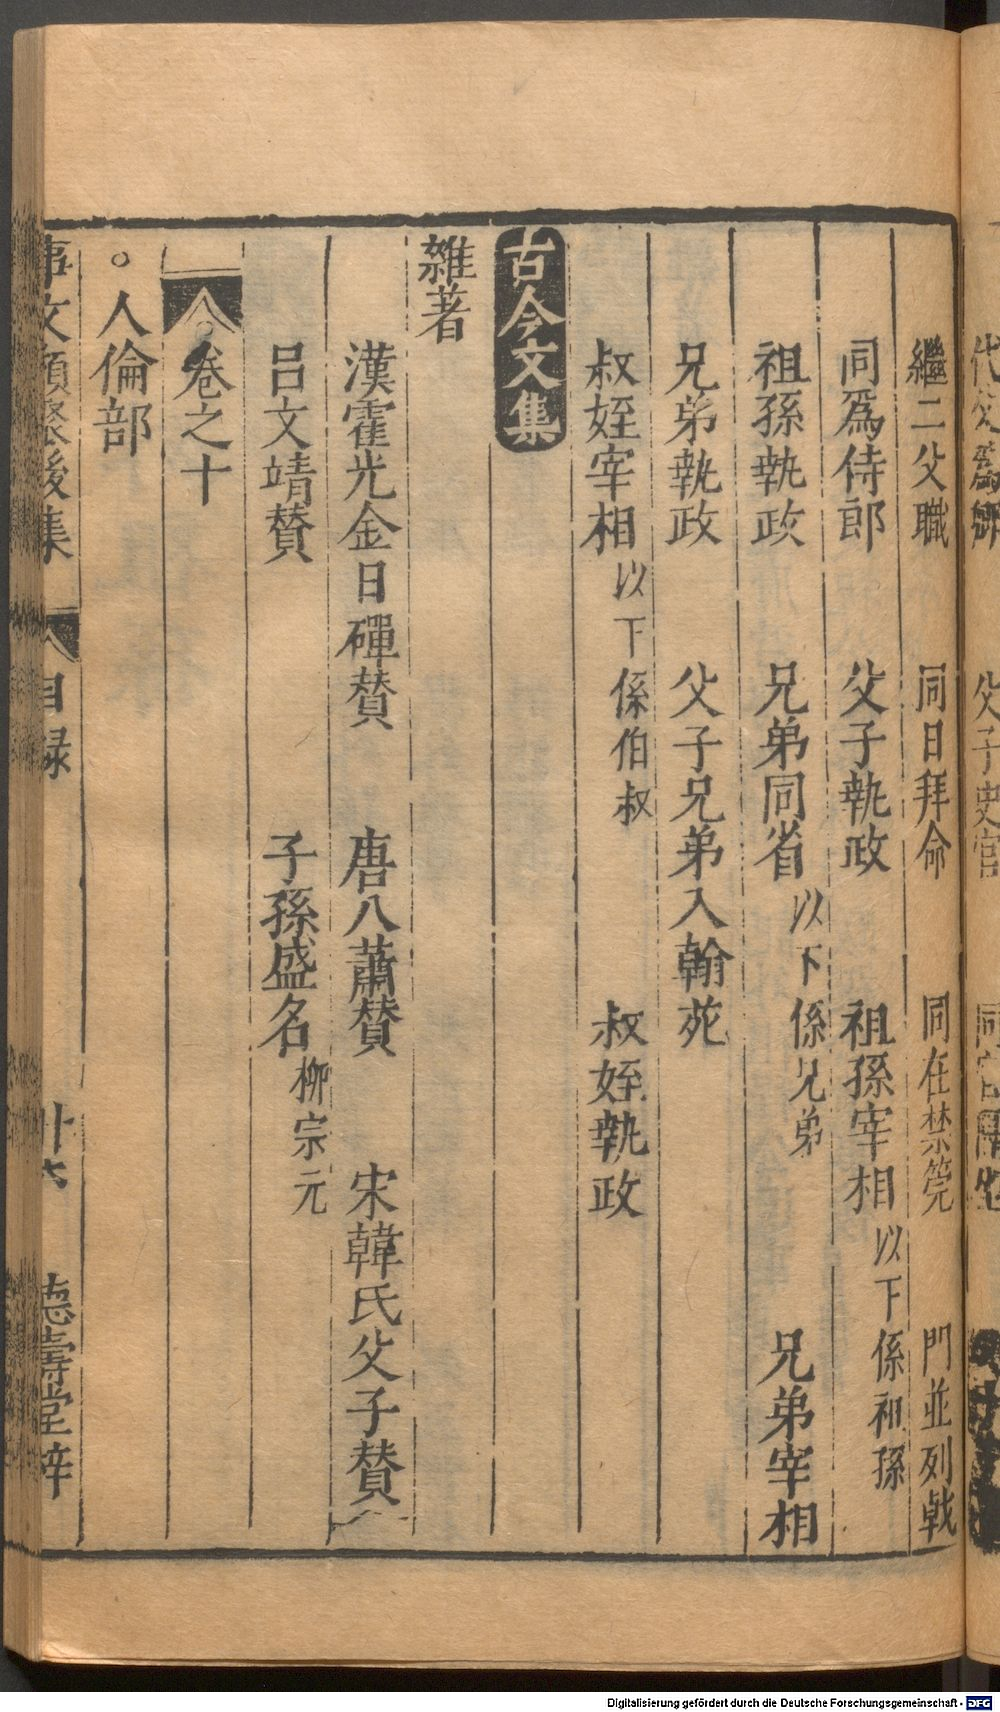 代父爲
父子史官
同官
繼二父職 同日拜命 同在禁筦 門並列戟
同爲侍郎 父子執政 祖孫宰相 以下係祖孫
祖孫執政 兄弟同省 以下係兄弟 兄弟宰相
兄弟執政 父子兄弟入翰苑
叔姪宰相 以下係伯叔 叔姪執政
古今文集
雜著
漢霍光金日磾賛 唐八蕭賛 宋韓氏父子賛
呂文靖賛 子孫盛名 柳宗元
卷之十
人倫部
事文類聚後集 目録 廿六 德壽堂梓
Digitalisierung gefördert durch die Deutsche Forschungsgemeinschaft - DFG